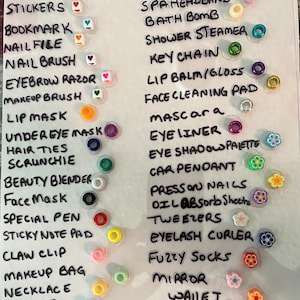 STICKERS
BOOKMARK
NAIL FILE
NAIL BRUSH
EYEBROW RAZOR
MAKEUP BRUSH
LIP MASK
UNDER EYE MASK
HAIR TIES
SCRUNCHIE
BEAUTY BLENDER
Face MASK
SPECIAL PEN
STICKY NOTE PAD
CLAW CLIP
MAKEUP BAG
NECKLACE
SPA HEADBAND
BATH BOMB
SHOWER STEAMER
KEY CHAIN
LIP BALM/GLOSS
FACE CLEANING PAD
mascara
EYELINER
EYE SHADOW PALETTE
CAR PENDANT
PRESS ON NAILS
OIL Absorb Sheets
TWEEZERS
EYELASH CURLER
FUZZY SOCKS
MIRROR
WALLET